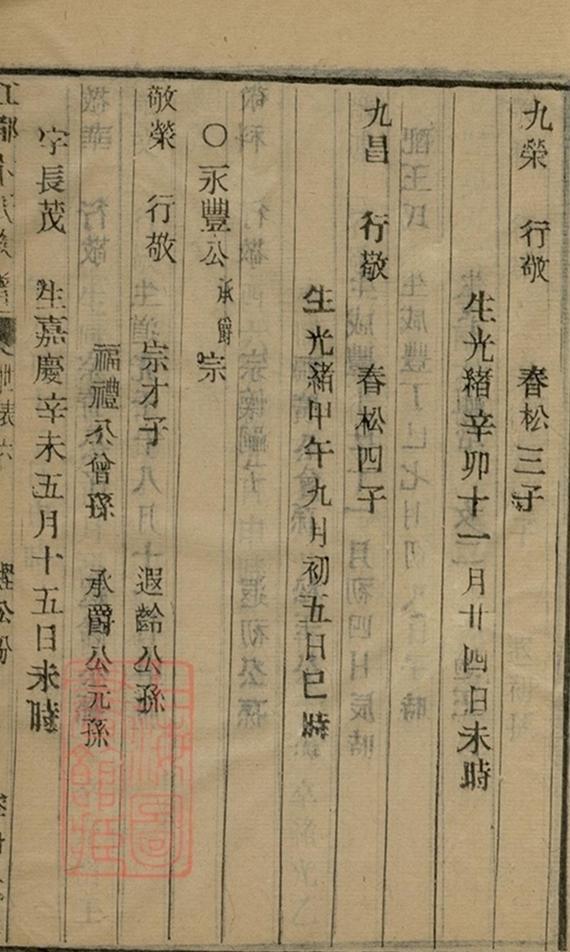 九榮　行敬　春松三子
生光緒辛卯十一月廿四日未時
九昌　行敬　春松四子
生光緒甲午九月初五日巳時
〇永豐公承爵宗
敬榮　行敬　宗才子　遐齡公孫
福禮公曾孫　承爵公元孫
字長茂　生嘉慶辛未五月十五日未時